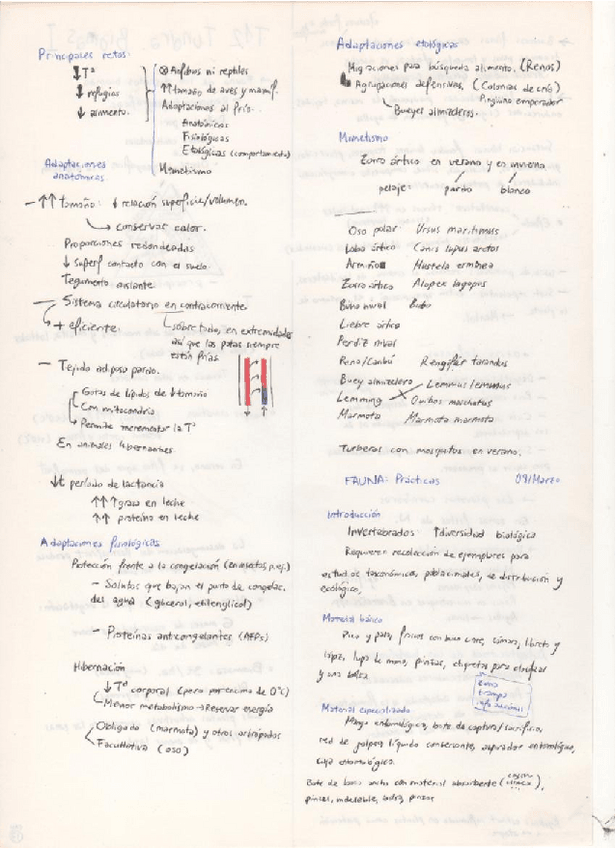 Principales retos:
↓Tª
↓ refugios
↓ alimento.
⊗ Anfibios ni reptiles
↑↑ tamaño de aves y mamíf.
Adaptaciones al frío:
Anatómicas
Fisiológicas
Etológicas (comportamiento)
Mimetismo
Adaptaciones
anatómicas
- ↑↑ tamaño: ↓ relación superficie/volumen.
↳ conservar calor.
Proporciones redondeadas
↓ superf contacto con el suelo
Tegumento aislante
- Sistema circulatorio en contracorriente
+ eficiente.
↳ sobre todo, en extremidades
así que las patas siempre
están frías.
- Tejido adiposo pardo.
Gotas de lípidos de ↓tamaño
Con mitocondria
Permite incrementar la Tª
En animales hibernantes
↓t período de lactancia
↑↑↑ grasa en leche
↑↑ proteína en leche
Adaptaciones fisiológicas
Protección frente a la congelación (en insectos, p.ej.)
- Solutos que bajan el punto de congelac.
del agua (glicerol, etilenglicol)
- Proteínas anticongelantes (AFPs)
Hibernación
↓Tª corporal (pero por encima de 0ºC)
Menor metabolismo → Reservar energía
Obligada (marmota) y otros
Facultativa (oso)
Adaptaciones etológicas
Migraciones para búsqueda alimento. (Renos)
Agrupaciones defensivas. (Colonias de cría)
Pingüino emperador
Bueyes almizcleros.
Mimetismo
Zorro ártico en verano y en invierno
pelaje: pardo blanco
Oso polar Ursus maritimus
Lobo ártico Canis lupus arctos
Armiño Mustela erminea
Zorro ártico Alopex lagopus
Buho nival Bubo
Liebre ártica
Perdiz nival
Reno/Caribú Rangifer tarandus
Buey almizclero Lemmus lemmus
Lemming Ovibos moschatus
Marmota Marmota marmota
Turberas con mosquitos en verano.
FAUNA: Prácticas 09/Marzo
Introducción
Invertebrados ↑diversidad biológica
Requieren recolección de ejemplares para
estudios taxonómicos, poblacionales, de distribución y
ecológico.
Material básico
Pico y pala, frascos con buen cierre, cámara, libreta y
lápiz, lupa de mano, pinzas, etiquetas para clasificar
y una bolsa
zona
trampa
info adicional
Material especializado
Manga entomológica, bote de captura/sacrificio,
red de golpeo, líquido conservante, aspirador entomológico,
caja entomológica.
Bote de boca ancha con material absorbente
pinzas, indeleble,